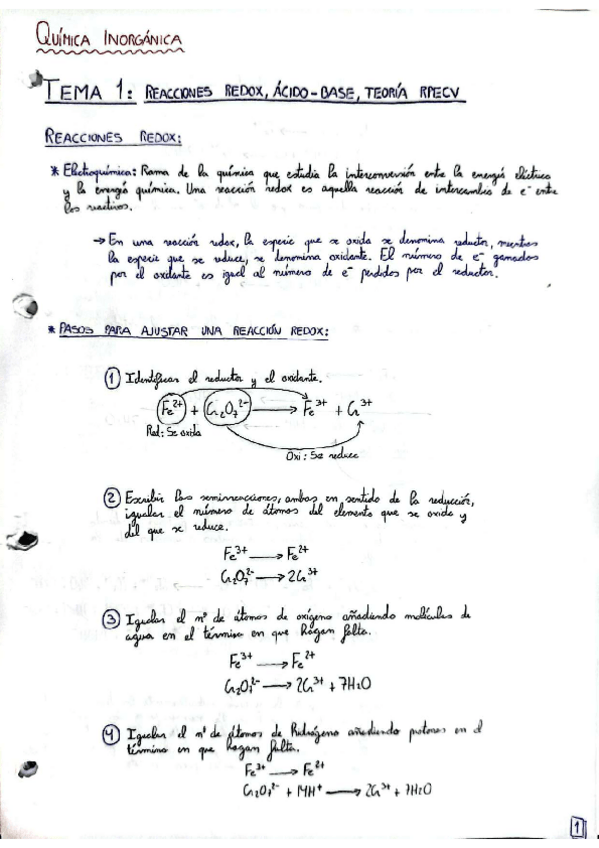 QUÍMICA INORGÁNICA
TEMA 1: REACCIONES REDOX, ÁCIDO-BASE, TEORÍA RPECV
REACCIONES REDOX:
* Electroquímica: Rama de la química que estudia la interconversión entre la energía eléctrica
y la energía química. Una reacción redox es aquella reacción de intercambio de e⁻ entre
los reactivos.
→ En una reacción redox, la especie que se oxida se denomina reductor, mientras
la especie que se reduce, se denomina oxidante. El número de e⁻ ganados
por el oxidante es igual al número de e⁻ perdidos por el reductor.
* PASOS PARA AJUSTAR UNA REACCIÓN REDOX:
① Identificar el reductor y el oxidante.
Fe²⁺ + Cr₂O₇²⁻ → Fe³⁺ + Cr³⁺
Red: Se oxida
Oxi: Se reduce
② Escribir las semirreacciones, ambas en sentido de la reducción,
igualar el número de átomos del elemento que se oxida y
del que se reduce.
Fe³⁺ → Fe²⁺
Cr₂O₇²⁻ → 2Cr³⁺
③ Igualar el nº de átomos de oxígeno añadiendo moléculas de
agua en el término en que hagan falta.
Fe³⁺ → Fe²⁺
Cr₂O₇²⁻ → 2Cr³⁺ + 7H₂O
④ Igualar el nº de átomos de hidrógeno añadiendo protones en el
término en que hagan falta.
Fe³⁺ → Fe²⁺
Cr₂O₇²⁻ + 14H⁺ → 2Cr³⁺ + 7H₂O
1